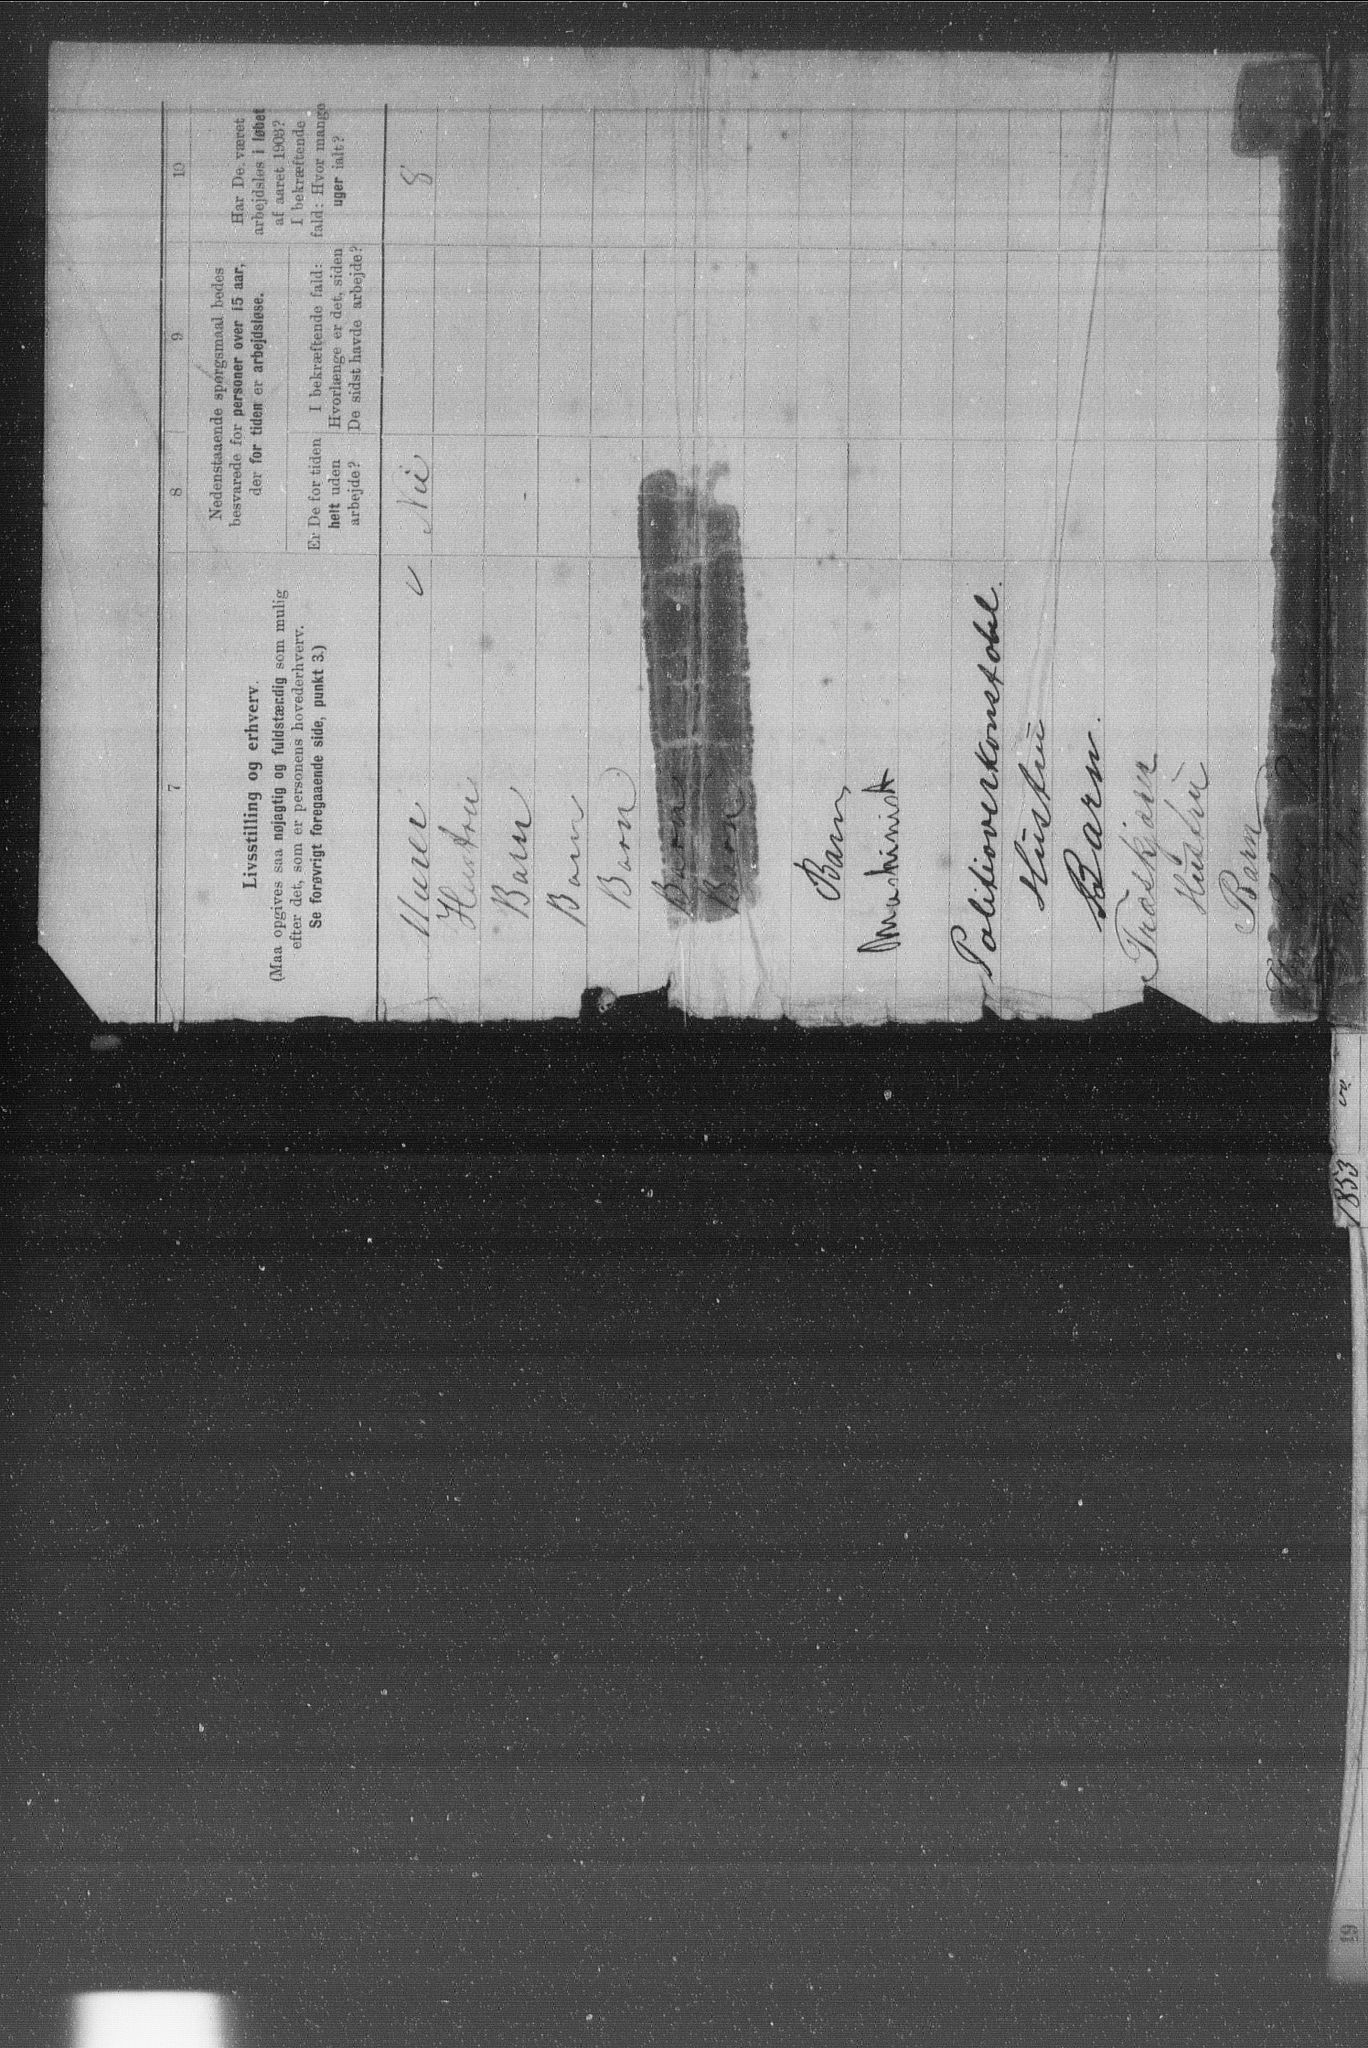 7
8
9
10
Livsstilling og erhverv.
(Maa opgives saa nøjagtig og fuldstændig som mulig
efter det, som er personens hovederhverv.
Se forøvrigt foregaaende side, punkt 3.)
Nedenstaaende spørgsmaal bedes
besvarede for personer over 15 aar,
der for tiden er arbejdsløse.
Er De for tiden
helt uden
arbejde?
I bekræftende fald:
Hvorlænge er det, siden
De sidst havde arbejde?
Har De været
arbejdsløs i løbet
af aaret 1903?
I bekræftende
fald: Hvor mange
uger ialt?
Murer Nei 8
Hustru
Barn
Barn
Barn
Barn
Barn
Barn
Maskinist
Politioverkonstabel.
Hustru
Barn.
Træskjærer
Hustru
Barn
1853
19